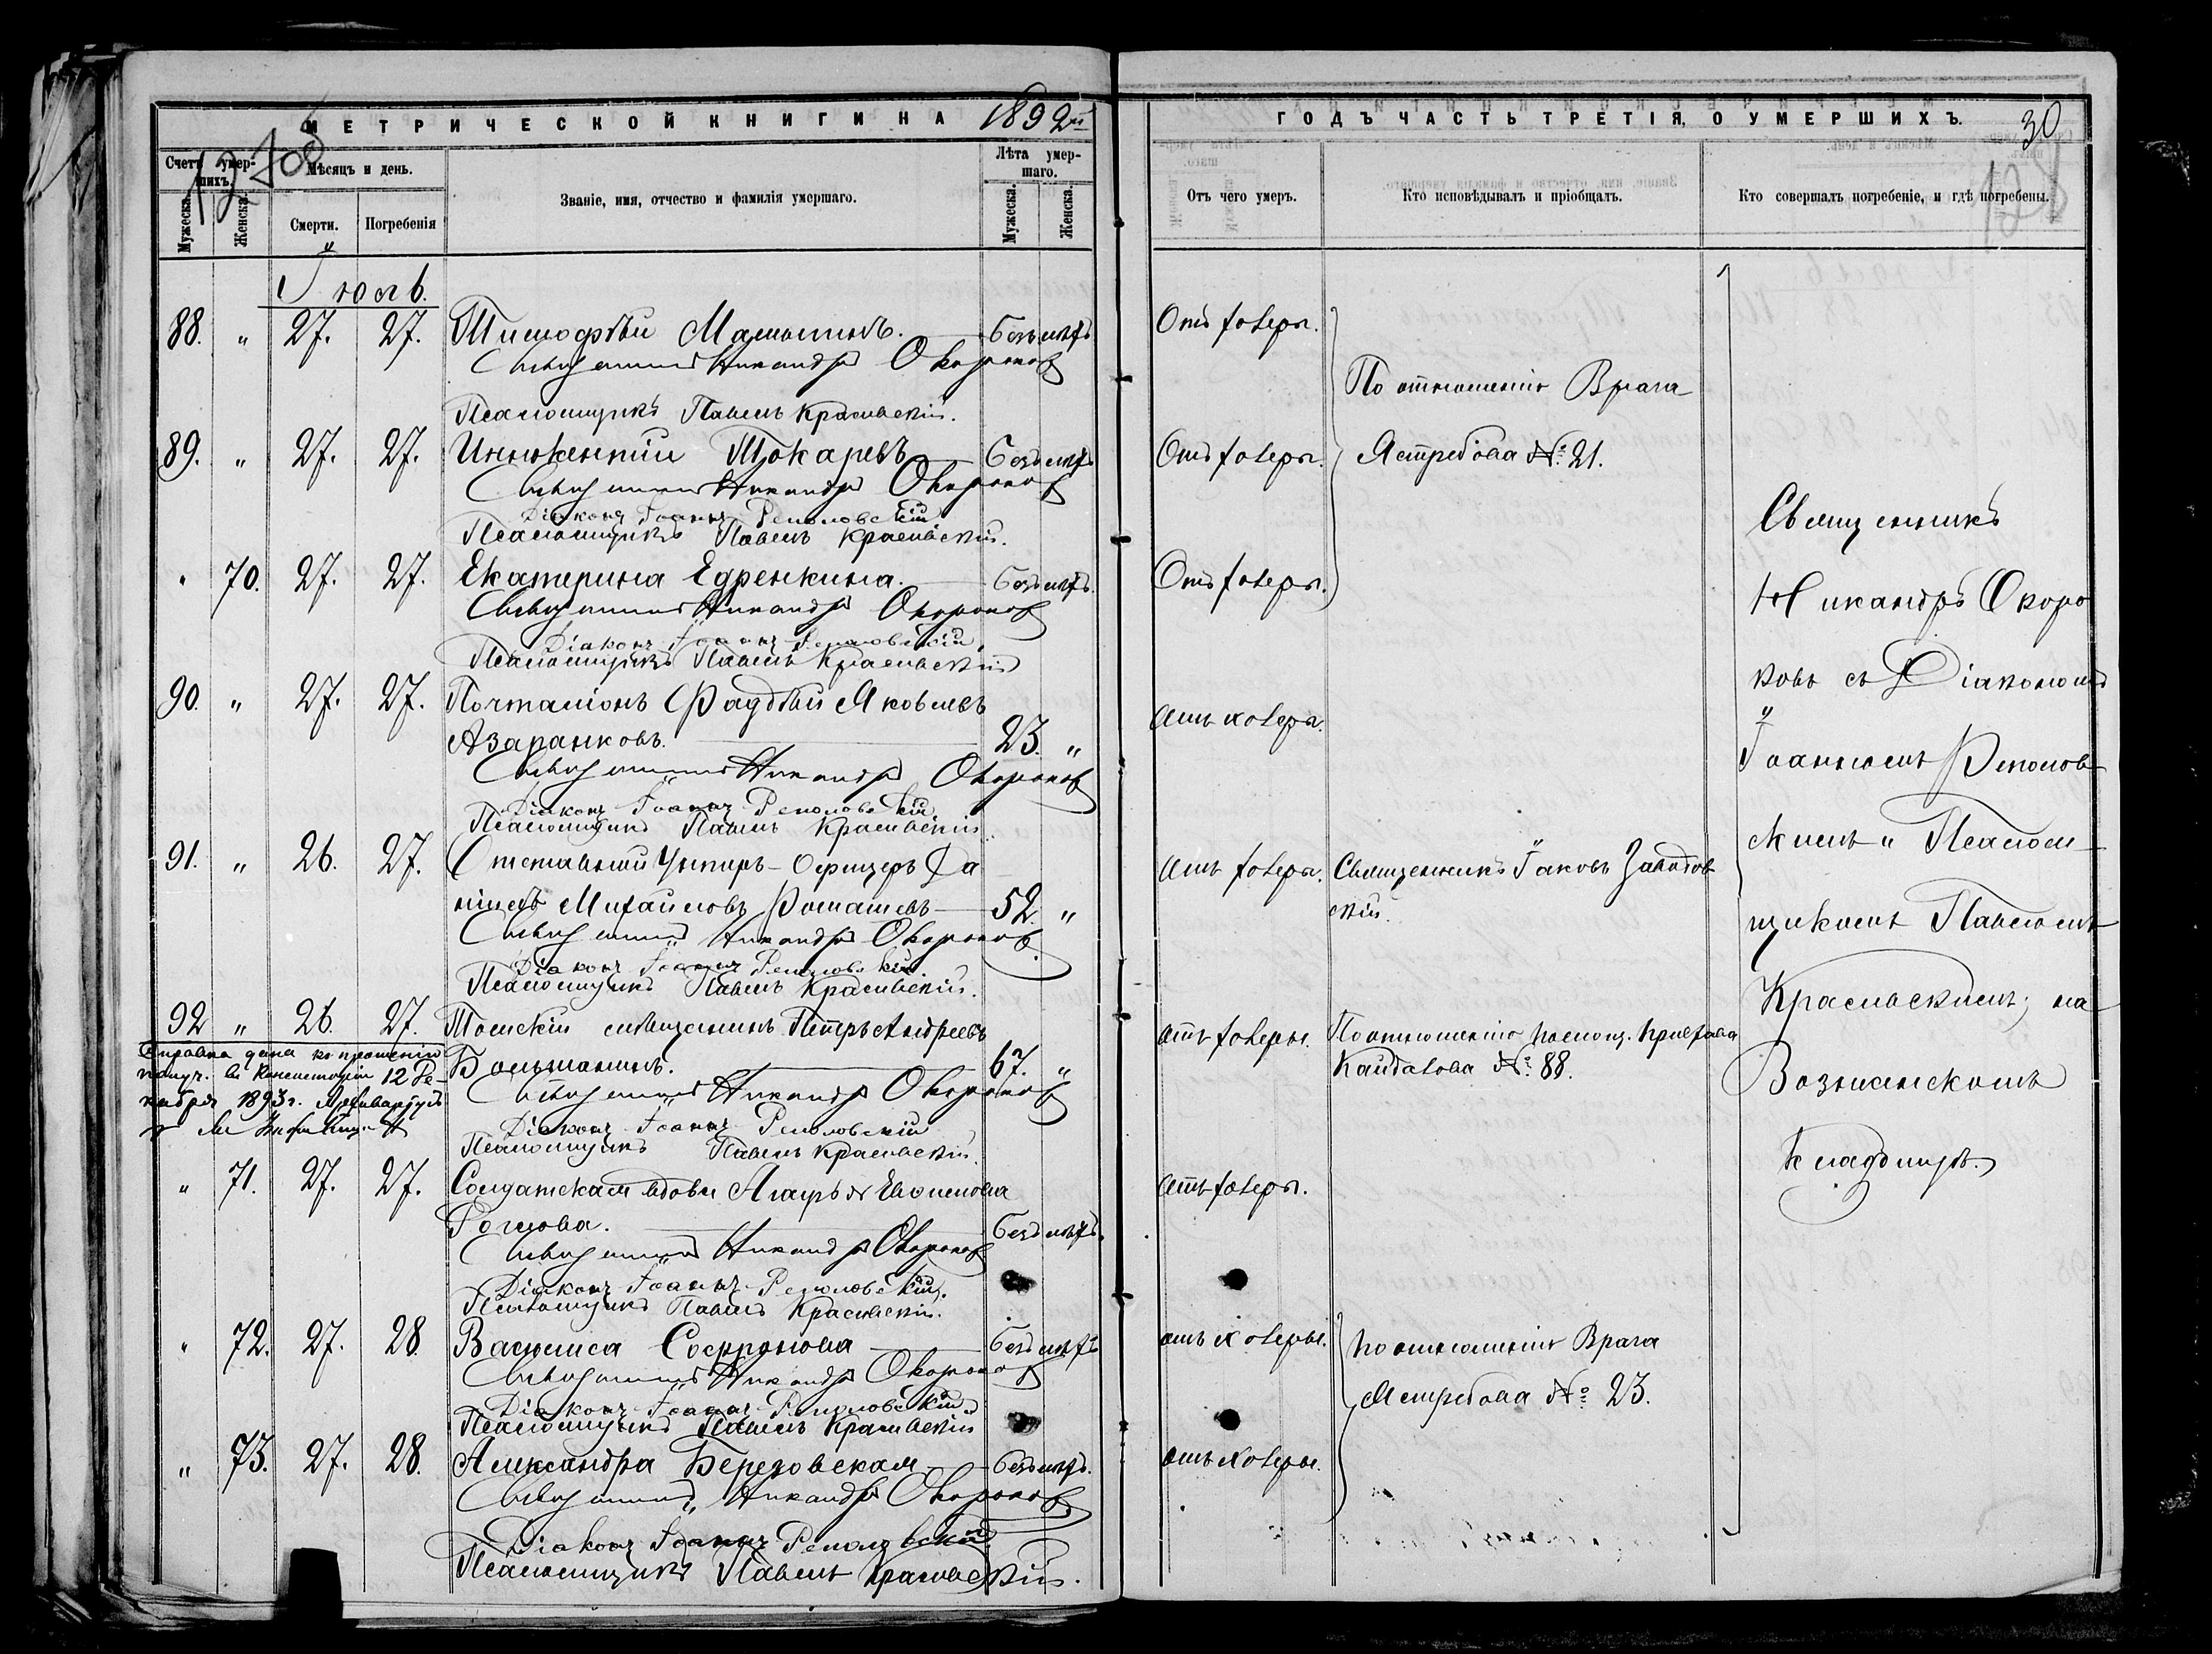 МЕТРИЧЕСКОЙ КНИГИ НА 1892й
Счетъ умершихъ.
Мѣсяцъ и день.
Званіе, имя, отчество и фамилія умершаго.
Лѣта умершаго.
Мужеска.
Женска.
Смерти.
Погребенія
Мужеска.
Женска.
Іюль.
88. " 27. 27. Тимофѣй Мамонтовъ. безъ лѣтъ
Священникъ Никандръ Окороковъ
Псаломщикъ Павелъ Красивскій.
89. " 27. 27. Иннокентій Токаревъ безъ лѣтъ
Священникъ Никандръ Окороковъ
Діаконъ Іоаннъ Реполовскій
Псаломщикъ Павелъ Красивскій.
" 70. 27. 27. Екатерина Едренкина. безъ лѣтъ.
Священникъ Никандръ Окороковъ
Діаконъ Іоаннъ Реполовскій
Псаломщикъ Павелъ Красивскій
90. " 27. 27. Почталіонъ Фаддѣй Яковлевъ
Азаранковъ. 23. "
Священникъ Никандръ Окороковъ
Діаконъ Іоаннъ Реполовскій
Псаломщикъ Павелъ Красивскій
91. " 26. 27. Отставной Унтеръ-Офицеръ Да
ніилъ Михайловъ Ромашевъ 52. "
Священникъ Никандръ Окороковъ.
Діаконъ Іоаннъ Реполовскій.
Псаломщикъ Павелъ Красивскій.
92 " 26. 27. Томскій мѣщанинъ Петръ Андреевъ
Большанинъ. 67. "
Справка дана по прошенію
получ. въ Консисторіи 12 Де-
кабря 1893 г.
Священникъ Никандръ Окороковъ
Діаконъ Іоаннъ Реполовскій
Псаломщикъ Павелъ Красивскій.
" 71. 27. 27. Солдатская вдова Агафья
Рогцова. безъ лѣтъ.
Священникъ Никандръ Окороковъ
Діаконъ Іоаннъ Реполовскій.
Псаломщикъ Павелъ Красивскій.
" 72. 27. 28. Василиса Софронова безъ лѣтъ
Священникъ Никандръ Окороковъ
Діаконъ Іоаннъ Реполовскій
Псаломщикъ Павелъ Красивскій
" 73. 27. 28. Александра Березовская безъ лѣтъ.
Священникъ Никандръ Окороковъ
Діаконъ Іоаннъ Реполовскій
Псаломщикъ Павелъ Красивскій.
ГОДЪ ЧАСТЬ ТРЕТІЯ, О УМЕРШИХЪ. 30
Отъ чего умеръ.
Кто исповѣдывалъ и пріобщалъ.
Кто совершалъ погребеніе, и гдѣ погребены.
Отъ холеры.
По отношенію Врача
Отъ холеры. Ястребова №: 21.
Отъ холеры.
Отъ холеры.
Отъ холеры. Священникъ Іаковъ Завадов
скій.
Отъ холеры. По отношенію помощ. пристава
Кайдалова №: 88.
Отъ холеры.
Отъ холеры. По отношенію Врача
Ястребова №: 23.
Отъ холеры.
Священникъ
Никандръ Окоро
ковъ съ Діакономъ
Іоанномъ Реполов
скимъ и Псалом-
щикомъ Павломъ
Красивскимъ; на
Вознесенскомъ
кладбищѣ.